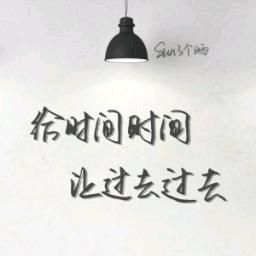 Sun3个日
给时间时间
让过去过去